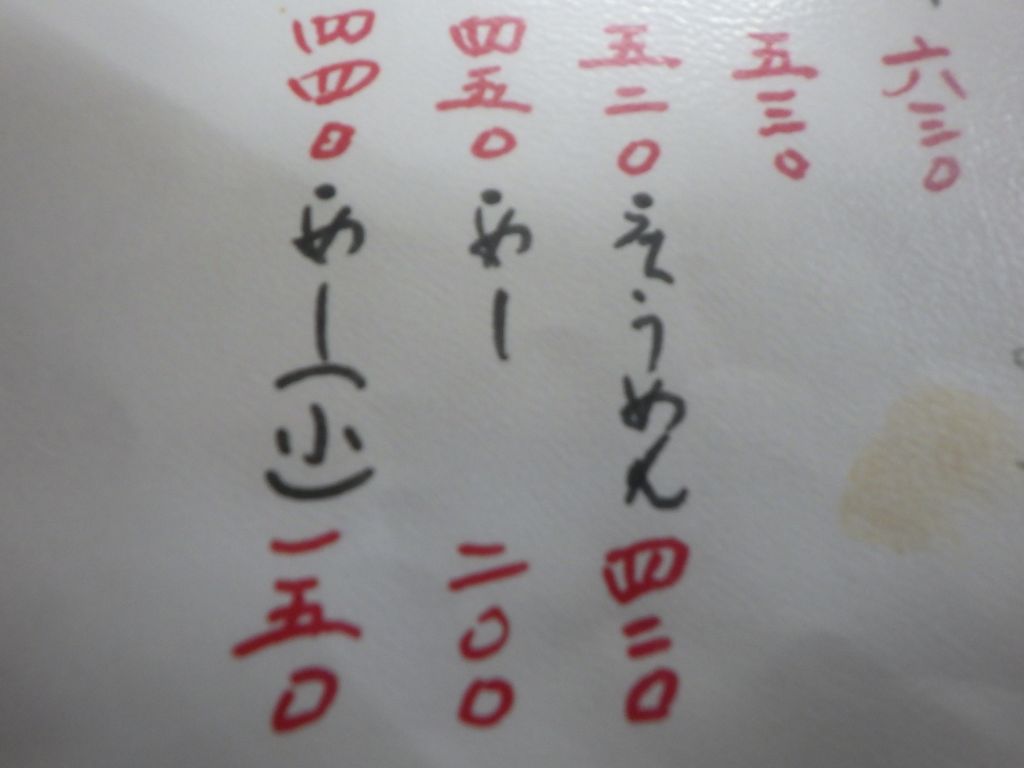 六三〇
五三〇
五二〇・そうめん四二〇
四五〇・めし二〇〇
四四〇・めし(小)一五〇